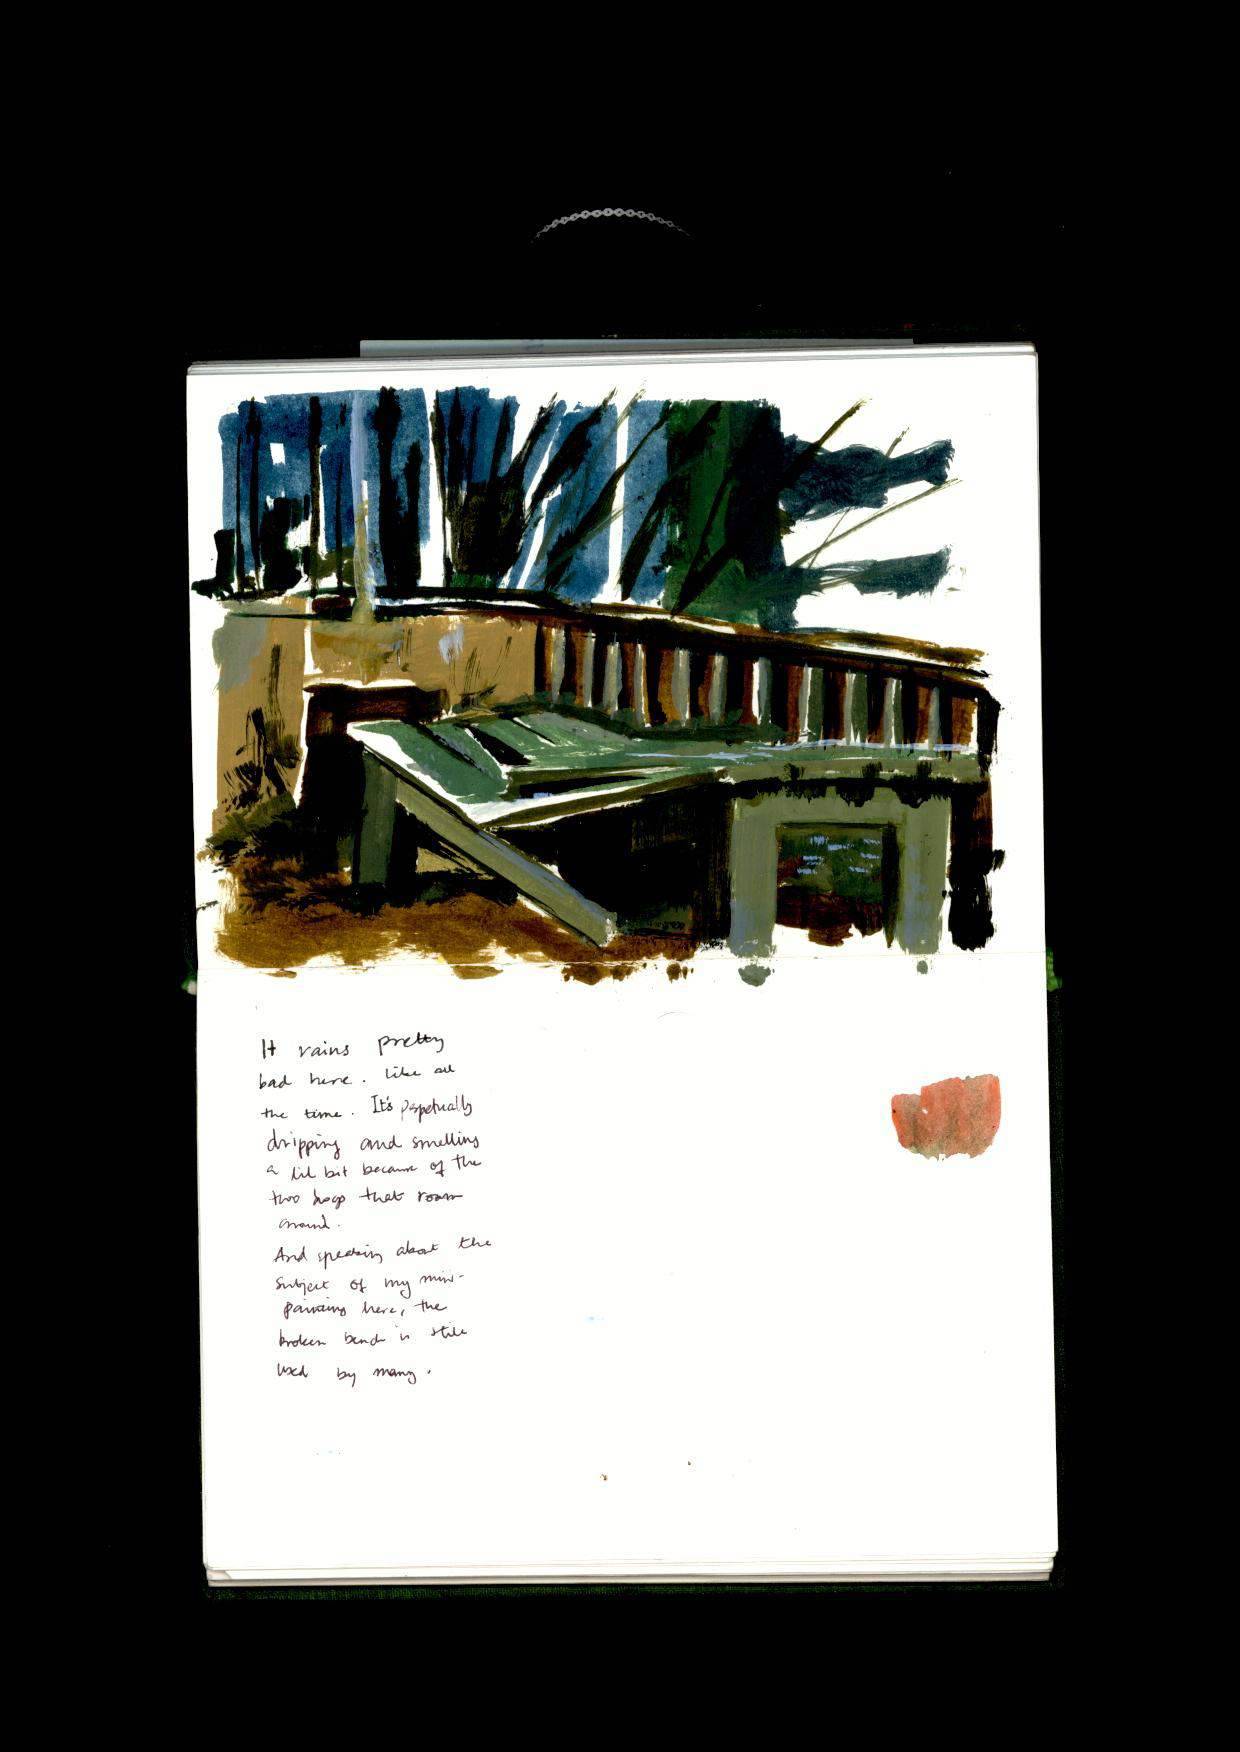 It rains pretty
bad here. Like all
the time. It's perpetually
dripping and smelling
a lil bit because of the
two hogs that roam
around.
And speaking about the
subject of my mini-
painting here, the
broken bench is still
used by many.